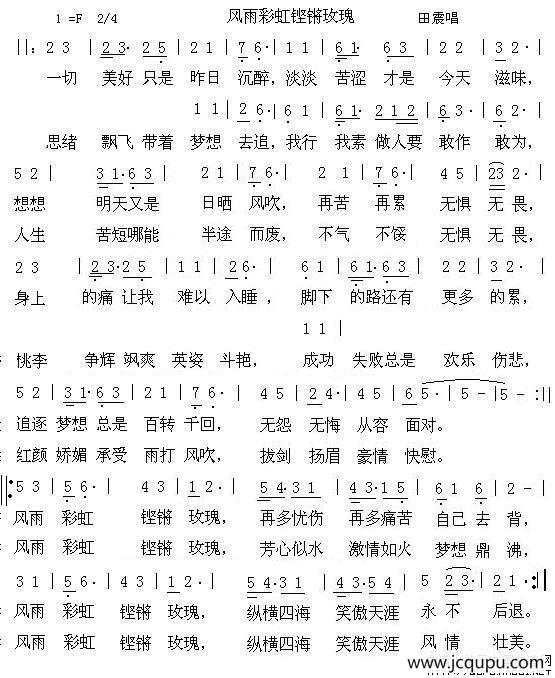 风雨彩虹铿锵玫瑰
1 =F 2/4 田震唱
||: 2 3 | 2 3· 2 5 | 1 2 | 7 6· | 1 1 | 6 1· | 6 3 | 2 1 | 3 2· |
一切 美好 只是 昨日 沉醉, 淡淡 苦涩 才是 今天 滋味,
1 1 | 2 6· | 6 1 | 6 1· 2 1 2 | 6 3· | 6 2· |
思绪 飘飞 带着 梦想 去追, 我行 我素 做人要 敢作 敢为,
5 2 | 3 1· 6 3 | 2 1 | 7 6· | 2 1 | 7 6· | 4 5 | 2 3 2· |
想想 明天又是 日晒 风吹, 再苦 再累 无惧 无畏,
人生 苦短哪能 半途 而废, 不气 不馁 无惧 无畏,
2 3 | 2 3· 2 5 | 1 1 | 2 6· | 6 1 | 6 1· 6 3 | 2 3 | 3 2· |
身上 的痛 让我 难以 入睡, 脚下 的路还有 更多 的累,
1 1 |
桃李 争辉 飒爽 英姿 斗艳, 成功 失败总是 欢乐 伤悲,
5 2 | 3 1· 6 3 | 2 1 | 7 6· | 4 5 | 2 4· | 4 5 | 6 5· | 5 - | 5 - :||
追逐 梦想 总是 百转 千回, 无怨 无悔 从容 面对。
红颜 娇媚 承受 雨打 风吹, 拔剑 扬眉 豪情 快慰。
||: 5 3 | 5 6· | 4 3 | 1 2· | 5 4· 3 1 | 4 3· 1 5 | 6 1 | 2 - |
风雨 彩虹 铿锵 玫瑰, 再多忧伤 再多痛苦 自己 去 背,
风雨 彩虹 铿锵 玫瑰, 芳心似水 激情如火 梦想 鼎 沸,
3 1 | 5 6· | 4 3 | 1 2· | 5 4· 3 1 | 4 3· 2 1 | 5 2 3· | 2 1· :||
风雨 彩虹 铿锵 玫瑰, 纵横四海 笑傲天涯 永 不 后退。
风雨 彩虹 铿锵 玫瑰, 纵横四海 笑傲天涯 风 情 壮美。
www.jcqupu.com